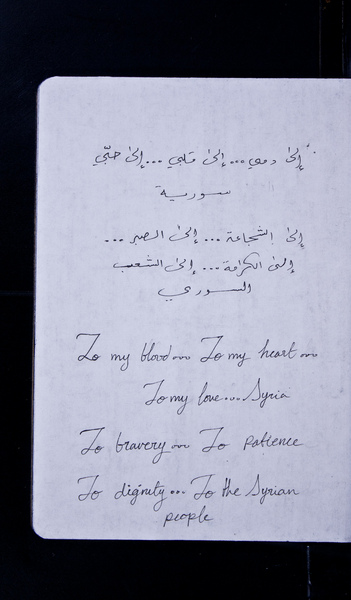 إلى دمي... إلى قلبي... إلى حبّي
سورية
إلى الشجاعة... إلى الصبر...
إلى الكرامة... إلى الشعب
السوري
To my blood... To my heart...
To my love... Syria
To bravery... To patience
To dignity... To the Syrian
people